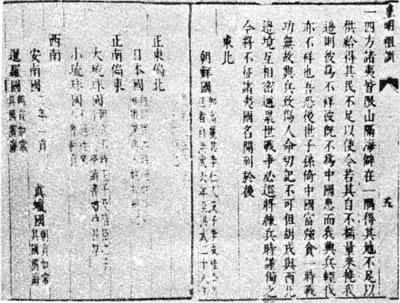 皇明祖訓
一四方諸夷皆限山隔海僻在一隅得其地不足以
供給得其民不足以使令若其自不揣量來撓我
邊則彼為不祥彼既不為中國患而我興兵輕伐
亦不祥也吾恐後世子孫倚中國富強貪一時戰
功無故興兵致傷人命切記不可但胡戎與西北
邊境互相密邇累世戰爭必選將練兵時謹備之
今將不征諸夷國名開列於後
東北
朝鮮國
正東偏北
日本國
正南偏東
大琉球國
小琉球國
西南
安南國 三年一貢 真蠟國 朝貢如常其國濱海
暹羅國 朝貢如常其國濱海